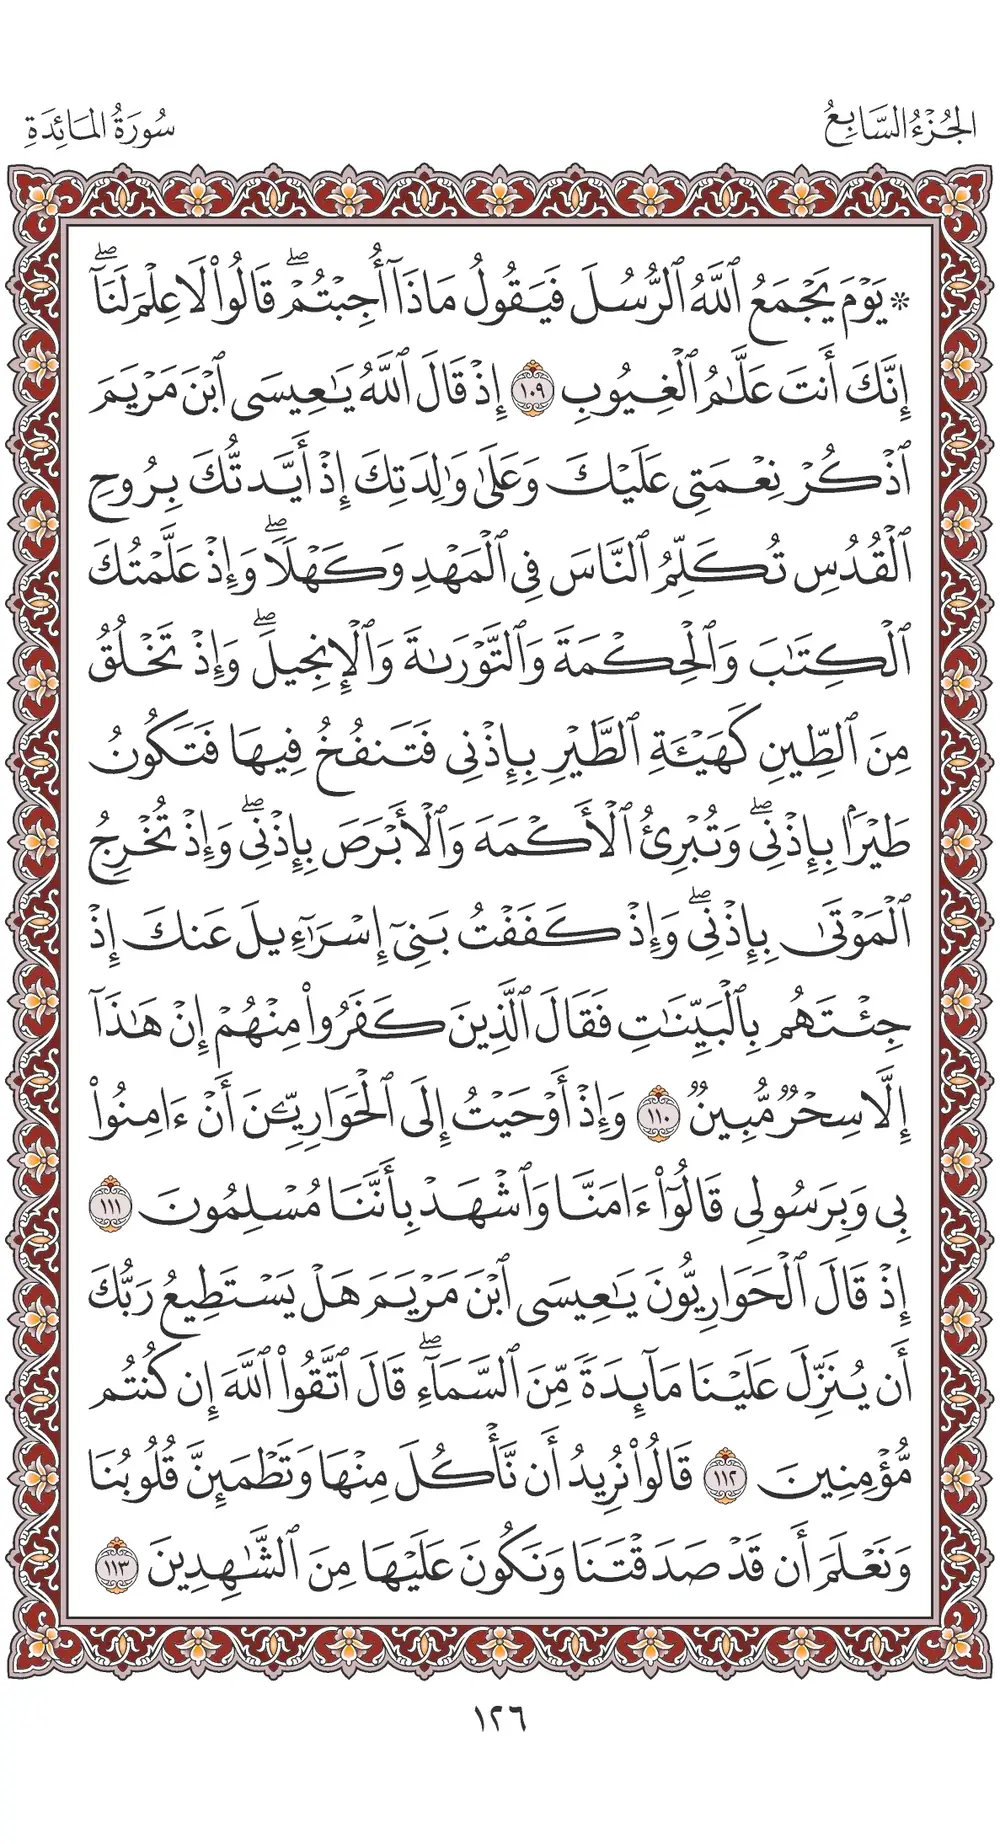 الجُزْءُ السَّابِعُ
سُورَةُ المَائِدَةِ
۞ يَوْمَ يَجْمَعُ ٱللَّهُ ٱلرُّسُلَ فَيَقُولُ مَاذَآ أُجِبْتُمْۖ قَالُوا۟ لَا عِلْمَ لَنَآۖ
إِنَّكَ أَنتَ عَلَّـٰمُ ٱلْغُيُوبِ ١٠٩ إِذْ قَالَ ٱللَّهُ يَـٰعِيسَى ٱبْنَ مَرْيَمَ
ٱذْكُرْ نِعْمَتِى عَلَيْكَ وَعَلَىٰ وَٰلِدَتِكَ إِذْ أَيَّدتُّكَ بِرُوحِ
ٱلْقُدُسِ تُكَلِّمُ ٱلنَّاسَ فِى ٱلْمَهْدِ وَكَهْلًاۖ وَإِذْ عَلَّمْتُكَ
ٱلْكِتَـٰبَ وَٱلْحِكْمَةَ وَٱلتَّوْرَىٰةَ وَٱلْإِنجِيلَۖ وَإِذْ تَخْلُقُ
مِنَ ٱلطِّينِ كَهَيْـَٔةِ ٱلطَّيْرِ بِإِذْنِى فَتَنفُخُ فِيهَا فَتَكُونُ
طَيْرًۢا بِإِذْنِىۖ وَتُبْرِئُ ٱلْأَكْمَهَ وَٱلْأَبْرَصَ بِإِذْنِىۖ وَإِذْ تُخْرِجُ
ٱلْمَوْتَىٰ بِإِذْنِىۖ وَإِذْ كَفَفْتُ بَنِىٓ إِسْرَٰٓءِيلَ عَنكَ إِذْ
جِئْتَهُم بِٱلْبَيِّنَـٰتِ فَقَالَ ٱلَّذِينَ كَفَرُوا۟ مِنْهُمْ إِنْ هَـٰذَآ
إِلَّا سِحْرٌ مُّبِينٌ ١١٠ وَإِذْ أَوْحَيْتُ إِلَى ٱلْحَوَارِيِّـۧنَ أَنْ ءَامِنُوا۟
بِى وَبِرَسُولِى قَالُوٓا۟ ءَامَنَّا وَٱشْهَدْ بِأَنَّنَا مُسْلِمُونَ ١١١
إِذْ قَالَ ٱلْحَوَارِيُّونَ يَـٰعِيسَى ٱبْنَ مَرْيَمَ هَلْ يَسْتَطِيعُ رَبُّكَ
أَن يُنَزِّلَ عَلَيْنَا مَآئِدَةً مِّنَ ٱلسَّمَآءِۖ قَالَ ٱتَّقُوا۟ ٱللَّهَ إِن كُنتُم
مُّؤْمِنِينَ ١١٢ قَالُوا۟ نُرِيدُ أَن نَّأْكُلَ مِنْهَا وَتَطْمَئِنَّ قُلُوبُنَا
وَنَعْلَمَ أَن قَدْ صَدَقْتَنَا وَنَكُونَ عَلَيْهَا مِنَ ٱلشَّـٰهِدِينَ ١١٣
١٢٦